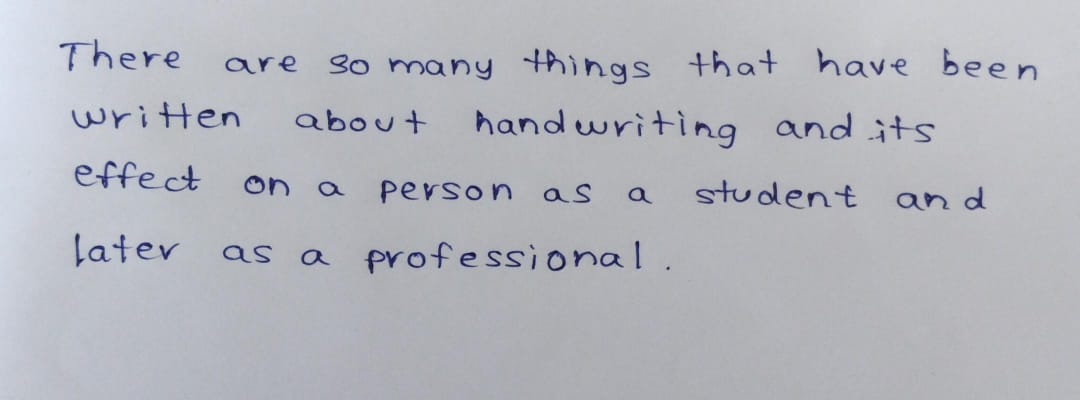 There are so many things that have been
written about handwriting and its
effect on a person as a student and
later as a professional.